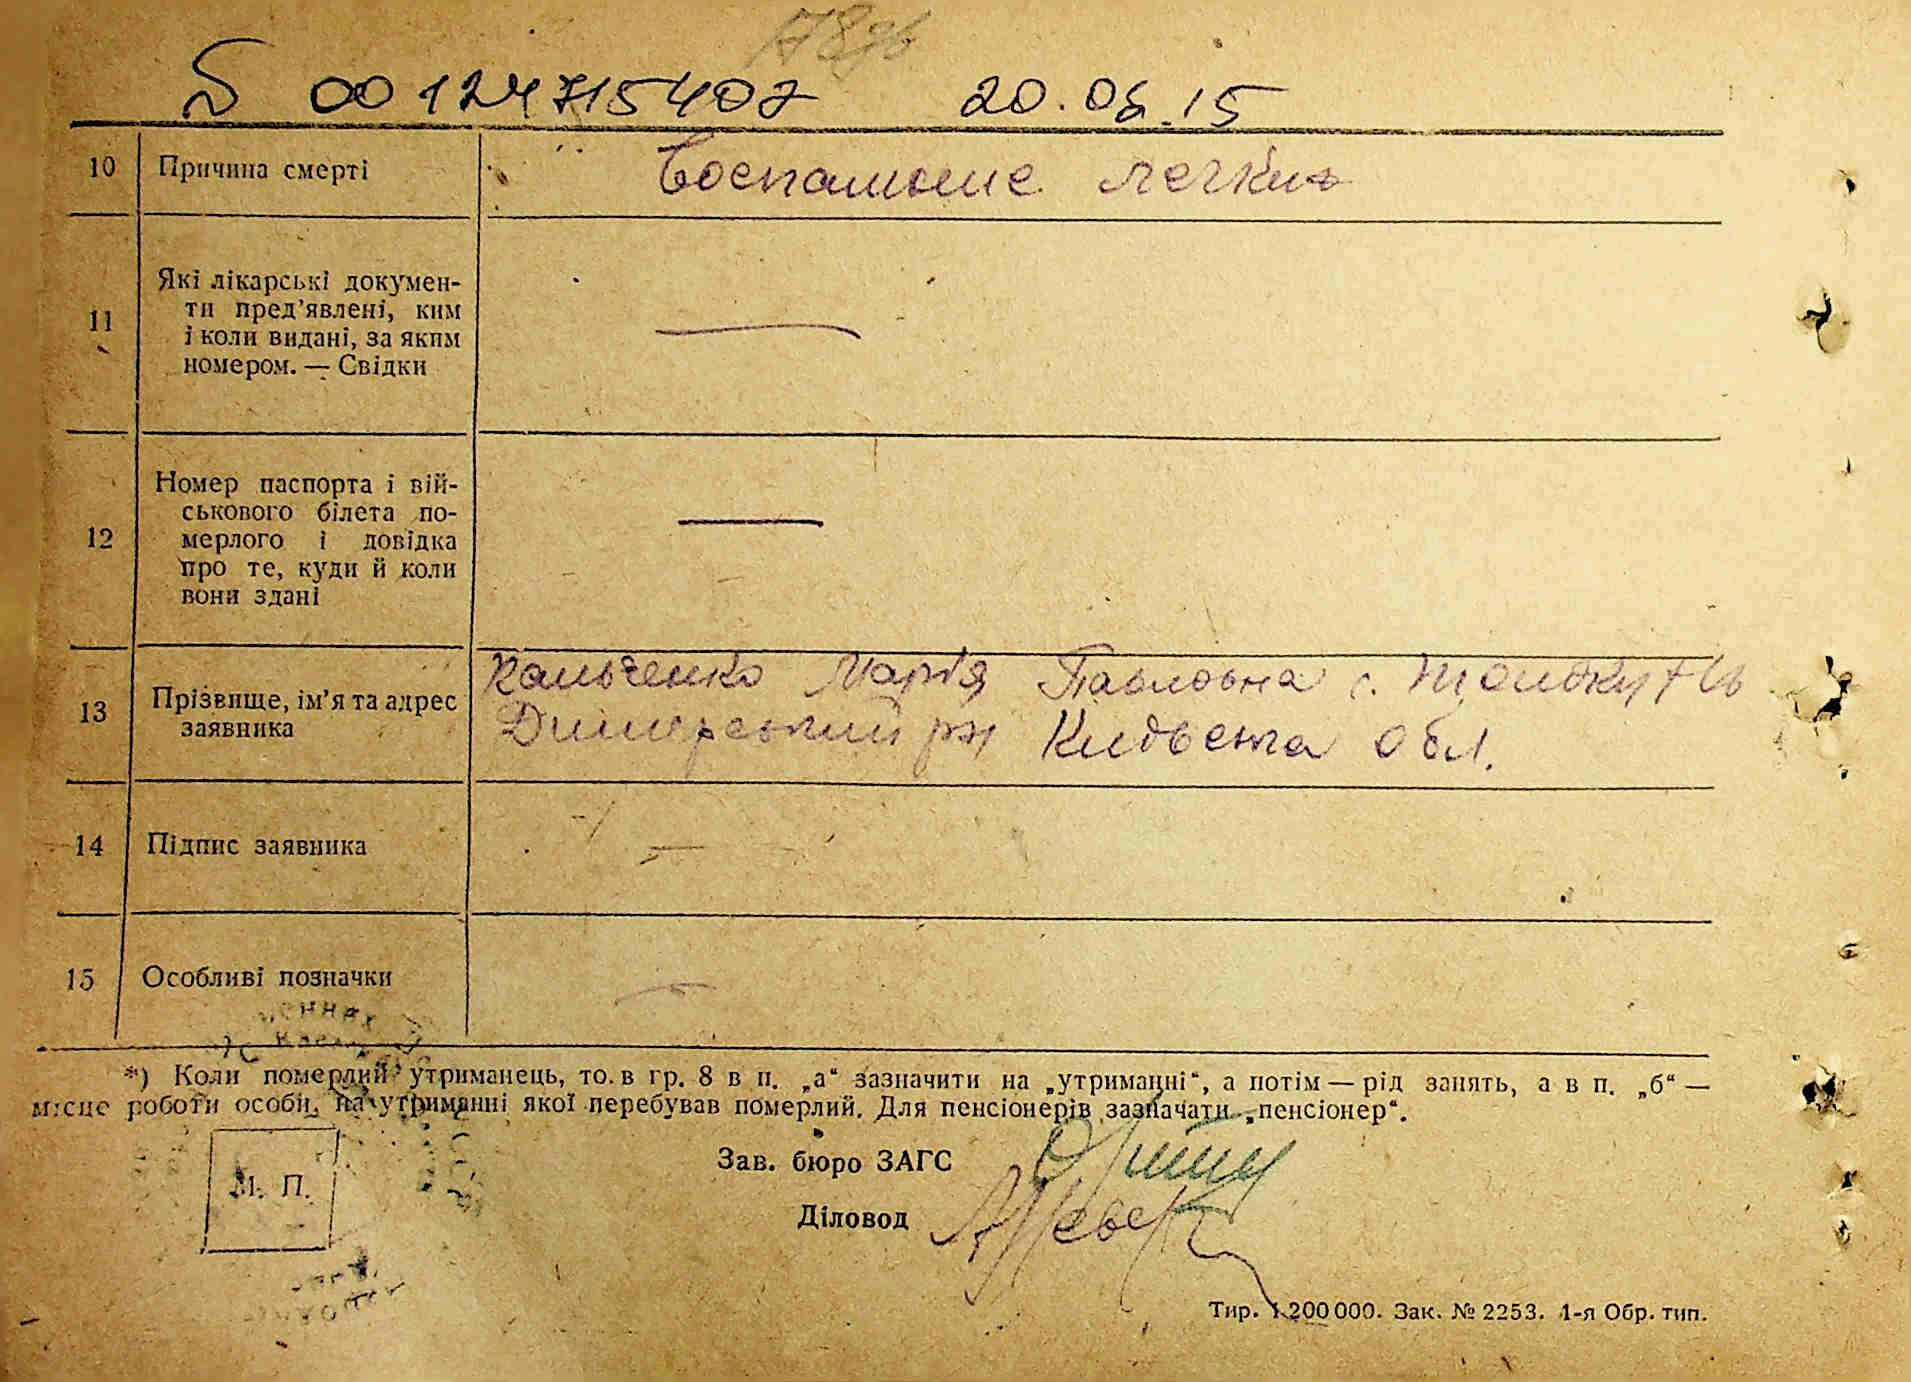 00124715407 20.05.15
10 Причина смерти Воспаление легких
11 Які лікарські докумен-
ти пред’явлені, ким
і коли видані, за яким
номером. — Свідки
12 Номер паспорта і вій-
ськового білета по-
мерлого і довідка
про те, куди й коли
вони здані
13 Прізвище, ім’я та адрес
заявника
Кальченко Марія Павловна с.
Димерський рн Київська обл.
14 Підпис заявника
15 Особливі позначки
*) Коли померлий утриманець, то в гр. 8 в п. „а“ зазначити на „утриманні“, а потім — рід занять, а в п. „б“ —
місце роботи особи, на утриманні якої перебував померлий. Для пенсіонерів зазначати „пенсіонер“.
М. П.
Зав. бюро ЗАГС
Діловод
Тир. 1 200 000. Зак. № 2253. 1-я Обр. тип.